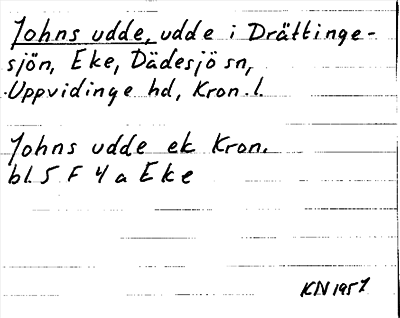 Johns udde, udde i Drättinge-
sjön, Eke, Dädesjö sn,
Uppvidinge hd, Kron.l.
Johns udde ek Kron.
bl. 5 F 4 a Eke
KN 1957